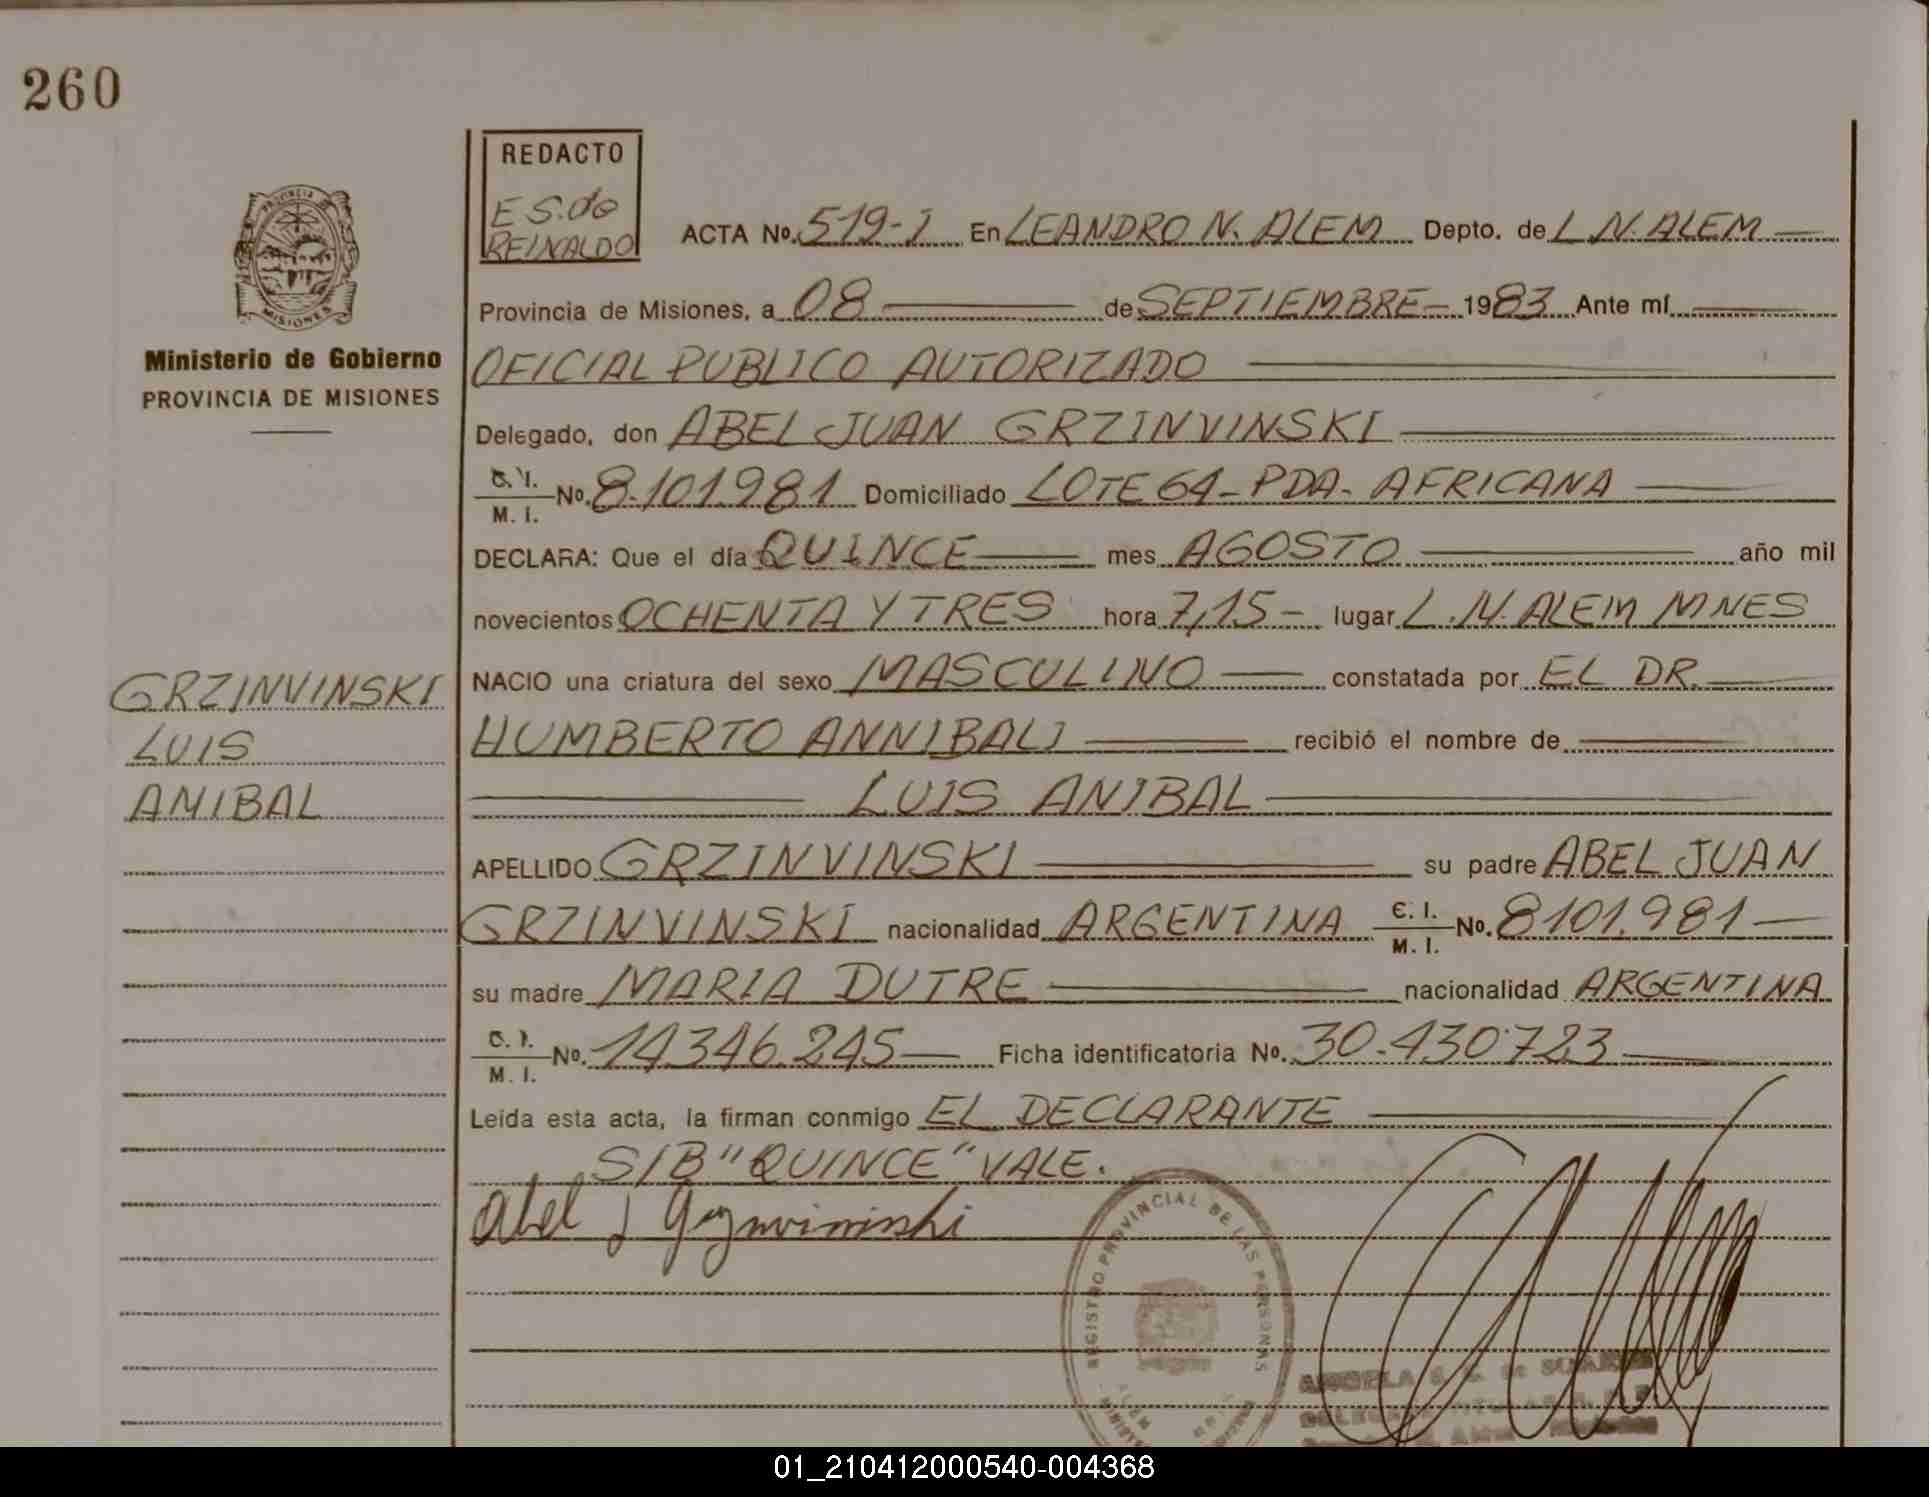 260
REDACTO
ES.do
REINALDO
ACTA No. 519-I En LEANDRO N. ALEM Depto. de L N. ALEM
PROVINCIA DE
MISIONES
Provincia de Misiones, a 08 de SEPTIEMBRE 1983 Ante mí
Ministerio de Gobierno
PROVINCIA DE MISIONES
OFICIAL PUBLICO AUTORIZADO
Delegado, don ABEL JUAN GRZINVINSKI
C. I.
M. I. No. 8.101.981 Domiciliado LOTE 64 - PDA - AFRICANA
DECLARA: Que el día QUINCE mes AGOSTO año mil
novecientos OCHENTA Y TRES hora 7,15 - lugar L.N. ALEM MNES
NACIO una criatura del sexo MASCULINO constatada por EL DR.
HUMBERTO ANNIBALI recibió el nombre de
LUIS ANIBAL
GRZINVINSKI
LUIS
ANIBAL
APELLIDO GRZINVINSKI su padre ABEL JUAN
GRZINVINSKI nacionalidad ARGENTINA C. I.
M. I. No. 8101.981
su madre MARIA DUTRE nacionalidad ARGENTINA
C. I.
M. I. No. 14.346.245 Ficha identificatoria No. 30-430.723
Leída esta acta, la firman conmigo EL DECLARANTE
S/B "QUINCE" VALE.
Abel J
REGISTRO PROVINCIAL DE LAS PERSONAS
01_210412000540-004368